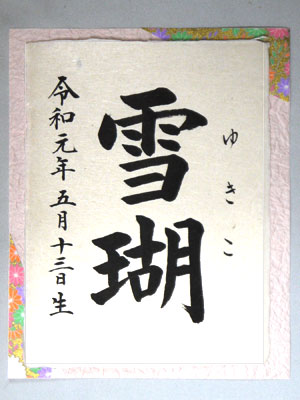 ゆきこ
雪瑚
令和元年五月十三日生